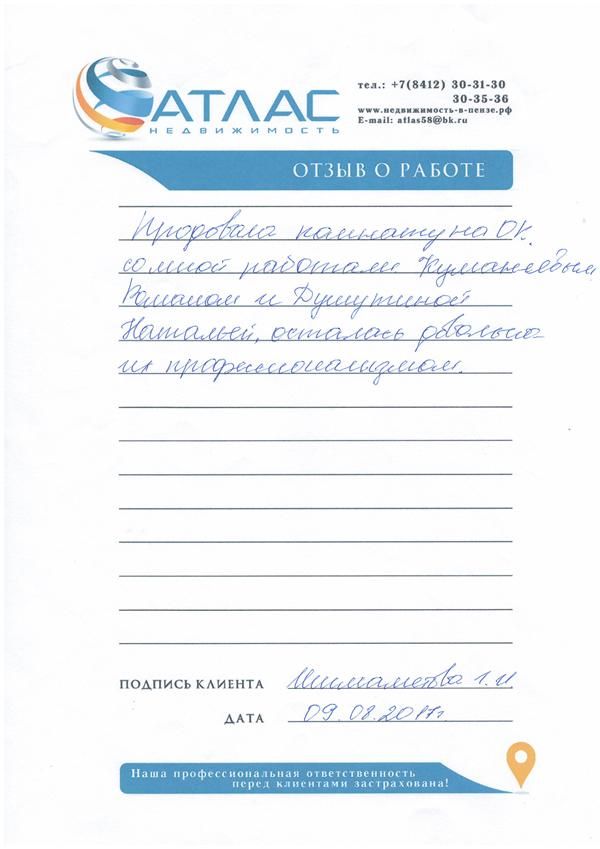 АТЛАС
НЕДВИЖИМОСТЬ
тел.: +7(8412) 30-31-30
30-35-36
www.недвижимость-в-пензе.рф
E-mail: atlas58@bk.ru
ОТЗЫВ О РАБОТЕ
Продовала комнату на ОК.
со мной работали
Романом и Душутиной
Натальей, осталась довольна
их профессионализмом.
ПОДПИСЬ КЛИЕНТА
ДАТА 09.08.2017г.
Наша профессиональная ответственность
перед клиентами застрахована!